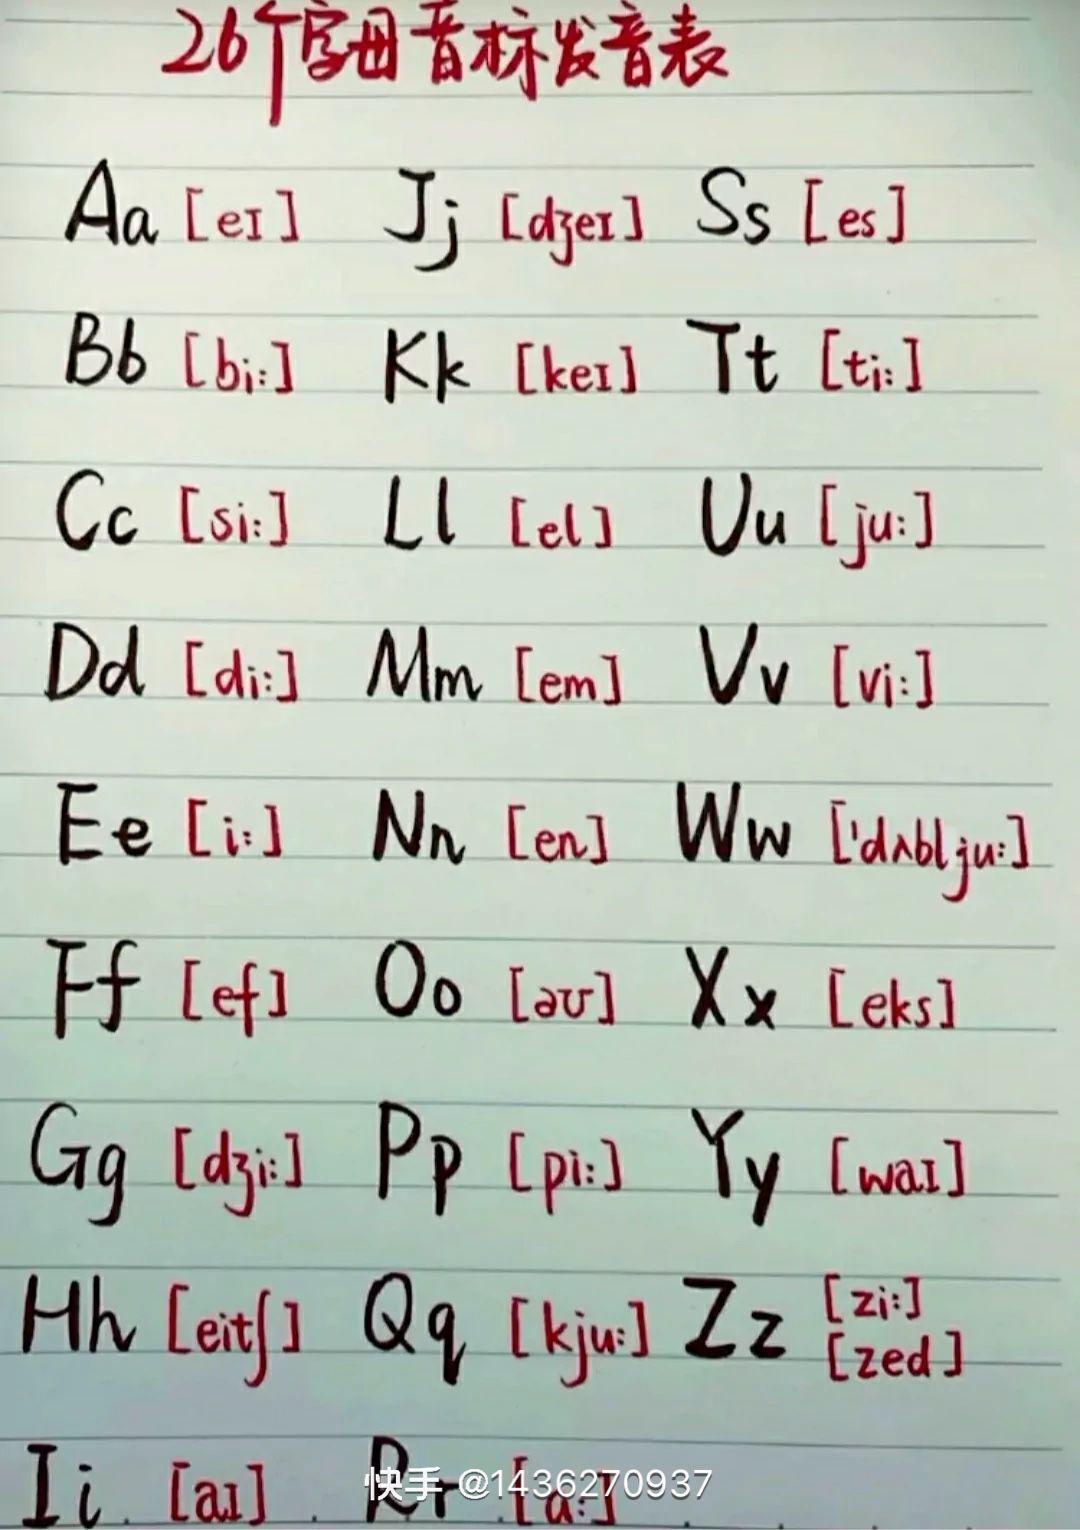 26个字母音标发音表
Aa [eɪ] Jj [dʒeɪ] Ss [es]
Bb [bi:] Kk [keɪ] Tt [ti:]
Cc [si:] Ll [el] Uu [ju:]
Dd [di:] Mm [em] Vv [vi:]
Ee [i:] Nn [en] Ww ['dʌblju:]
Ff [ef] Oo [əʊ] Xx [eks]
Gg [dʒi:] Pp [pi:] Yy [waɪ]
Hh [eitʃ] Qq [kju:] Zz [zi:]
[zed]
Ii [aɪ] Rr [a:]
快手 @1436270937